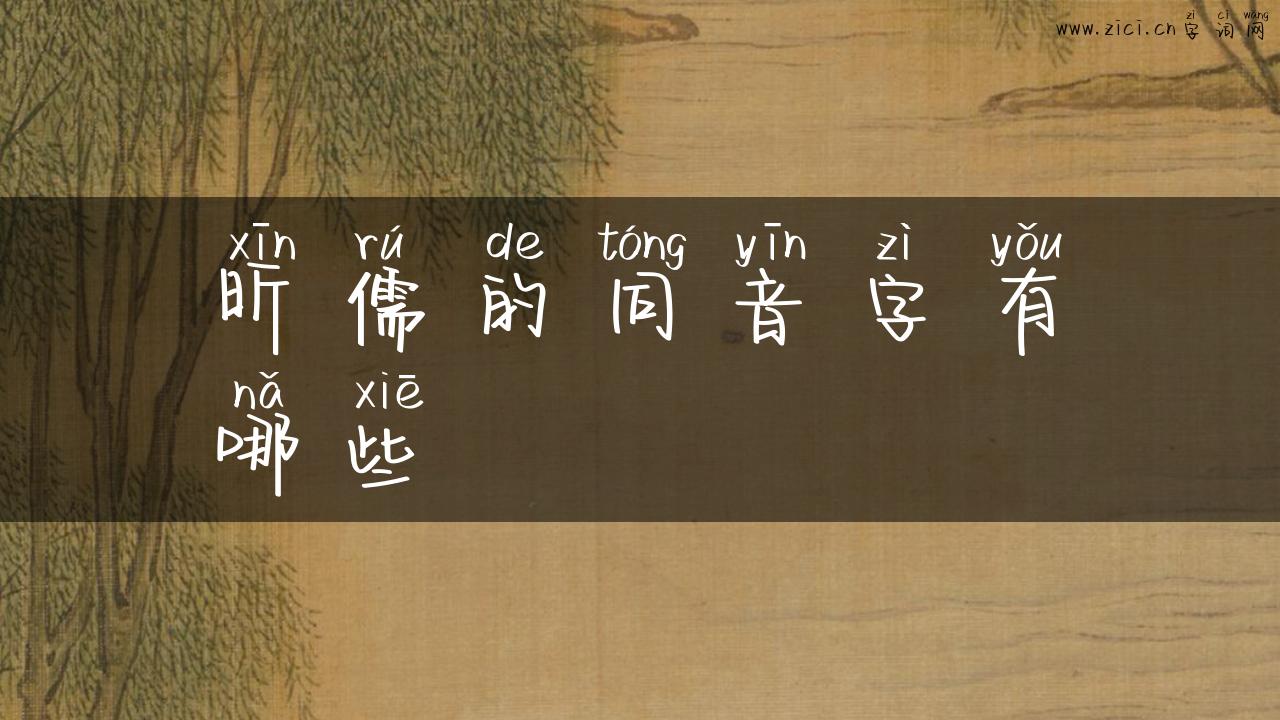 zì cí wǎng
www.zici.cn 字词网
xīn rú de tóng yīn zì yǒu
昕儒的同音字有
nǎ xiē
哪些